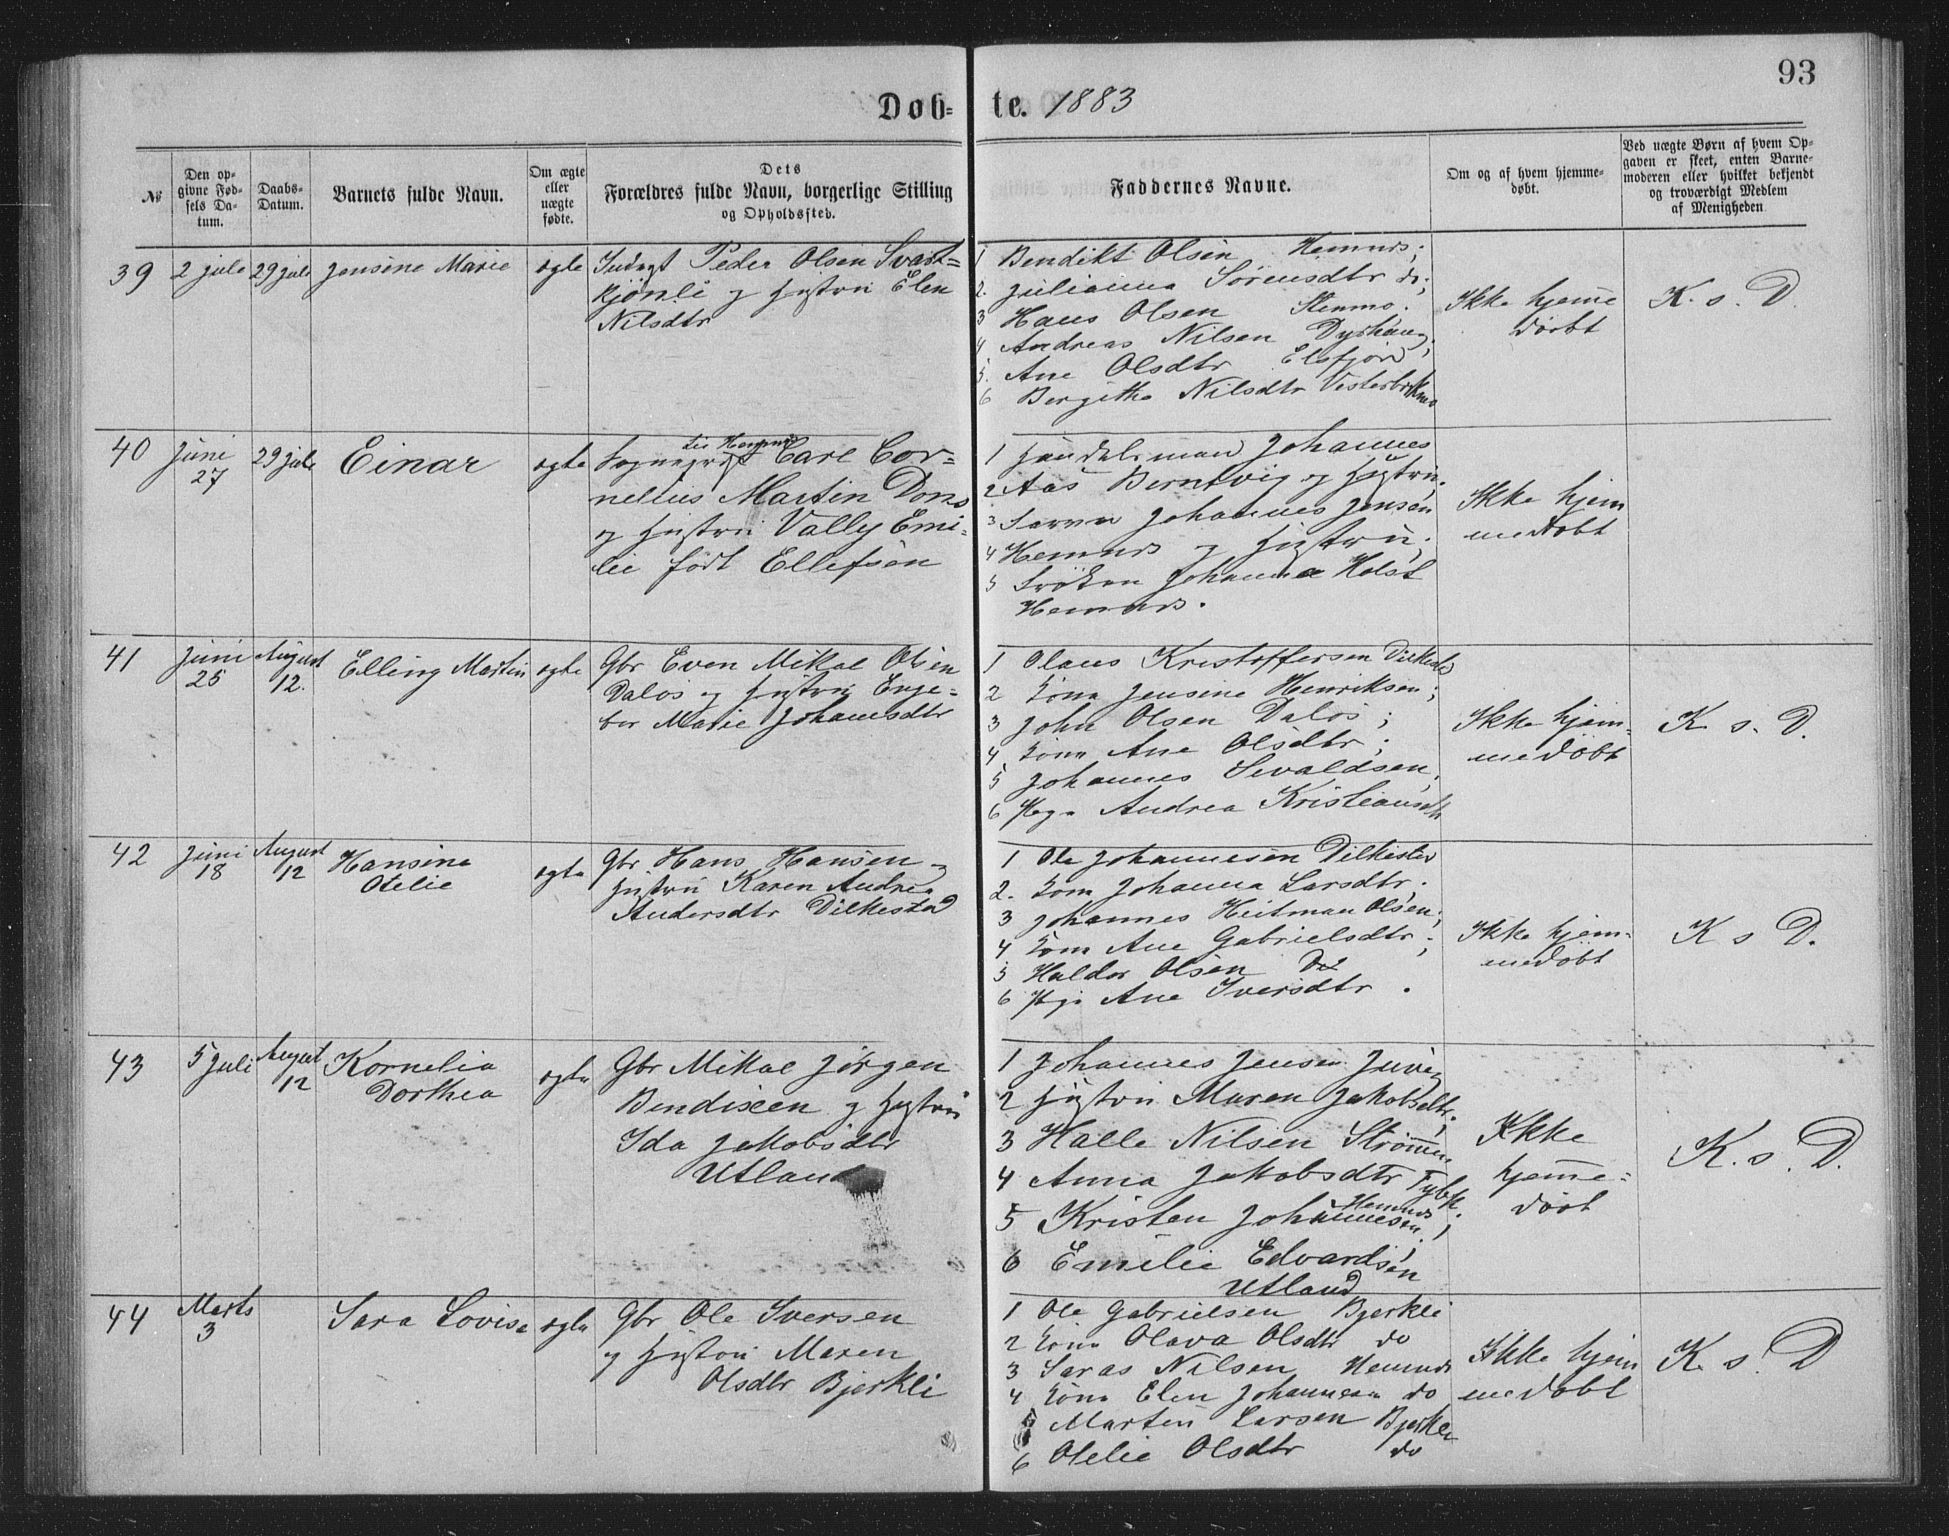 93
Døb- te. 1883
№
Den op-
givne Fød-
sels Da-
tum.
Daabs-
Datum.
Barnets fulde Navn.
Om ægte
eller
uægte
fødte.
Dets
Forældres fulde Navn, borgerlige Stilling
og Opholdssted.
Faddernes Navne.
Om og af hvem hjemme-
døbt.
Ved uægte Børn af hvem Op-
gaven er skeet, enten Barne-
moderen eller hvilket bekjendt
og troværdigt Medlem
af Menigheden
39 2 juli 29 juli Jensine Marie ægte Peder Olsen Svart=
kjønli og Hustru Elen
Nilsdtr
1 Bendikt Olsen Hemnes;
2. Julianna Sørensdtr do;
3 Hans Olsen
4 Andreas Nilsen Dyrhaug;
5. Ane Olsdtr Elsfjord
6 Bergithe Nilsdtr
Ikke hjeme
døbt
K. s. D.
40 Juni
27
29 juli Einar ægte Sogneprest til Hemnes Carl Cor=
nelius Martin Dons
og Hustru Vally Emi=
lie født Ellefsen
1 Handelsmand Johannes
2 Aas Berntvig og Hustru;
3 Johannes Jensen
4 Hemnes og Hustru;
5 Frøken Johanna Holst
Hemnes.
Ikke hjem
medøbt
41 Juni
25
August
12.
Elling Martin ægte Gbr Even Mikal Olsen
Dalos og Hustru Enge=
bor Marie Johansdtr
1 Olaus Kristoffersen Dilkestd
2 Kona Jensine Henriksen;
3 John Olsen Dalos;
4 Kona Ane Olsdtr;
5 Johannes Sivaldsen,
6 Pige Andrea Kristiansdtr
Ikke hjem=
medøbt
K s. D.
42 Juni
18
August
12
Hansine
Otelie
ægte Gbr Hans Hansen og
Hustru Karen Andrea
Andersdtr Dilkestad
1 Ole Johannesen Dilkestad
2. Kona Johanna Larsdtr;
3 Johannes Heitman Olsen;
4 Kona Ane Gabrielsdtr;
5 Haldor Olsen
6 Pige Ane Iversdtr.
Ikke hjem=
medøbt
K s D.
43 5 Juli August
12
Kornelia
Dorthea
ægte Gbr Mikal Jørgen
Bendixen og Hustru
Ida Jakobsdtr
Utland
1 Johannes Jensen Juvig
2 Hustru Maren Jakobsdtr;
3 Halle Nilsen Strømmen
4 Anna Jakobsdtr
5 Kristen Johannesen Hemnes;
6 Emilie Edvardsen
Utland
Ikke
hjeme=
døbt
K. s. D.
44 Marts
3
Sara Lovise ægte Gbr Ole Iversen
og Hustru Maren
Olsdtr Bjerkli
1 Ole Gabrielsen Bjerkli
2 Kona Olava Olsdtr do
3 Saras Nilsen Hemnes
4 Kona Elen Johannesen do
Martin Larsen Bjerkli
6 Otelie Olsdtr do
Ikke hjem
medøbt
K. s. D